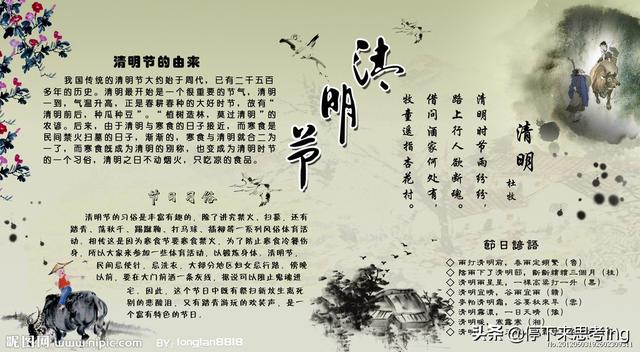 清明节的由来
我国传统的清明节大约始于周代，已有二千五百
多年的历史。清明最开始是一个很重要的节气，清明
一到，气温升高，正是春耕春种的大好时节，故有“
清明前后，种瓜种豆”。“植树造林，莫过清明”的
农谚。后来，由于清明与寒食的日子接近，而寒食是
民间禁火扫墓的日子，渐渐的，寒食与清明就合二为
一了，而寒食既成为清明的别称，也变成为清明时节
的一个习俗，清明之日不动烟火，只吃凉的食品。
节日习俗
清明节的习俗是丰富有趣的，除了讲究禁火、扫墓，还有
踏青、荡秋千、蹴鞠、打马球、插柳等一系列风俗体育活
动。相传这是因为寒食节要寒食禁火，为了防止寒食冷餐伤
身，所以大家来参加一些体育活动，以锻炼身体。清明节，
民间忌使针，忌洗衣，大部分地区妇女忌行路。傍晚
以前，要在大门前洒一条灰线，据说可以阻止鬼魂进
宅。因此，这个节日中既有祭扫新坟生离死
别的悲酸泪，又有踏青游玩的欢笑声，是一
个富有特色的节日。
清明节
清明
杜牧
清明时节雨纷纷，
路上行人欲断魂。
借问酒家何处有，
牧童遥指杏花村。
節日諺語
雨打清明前，春雨定頻繁（魯）
陰雨下了清明節，斷斷續續三個月（桂）
清明雨星星，一棵高粱打一升（黑）
清明宜晴，谷雨宜雨（贛）
麥怕清明霜，谷要秋來旱（雲）
清明霧濃，一日天晴（豫）
清明暖，寒露寒（湘）
昵图网 www.nipic.com
BY: longlan8818
头条 @停下来思考ing